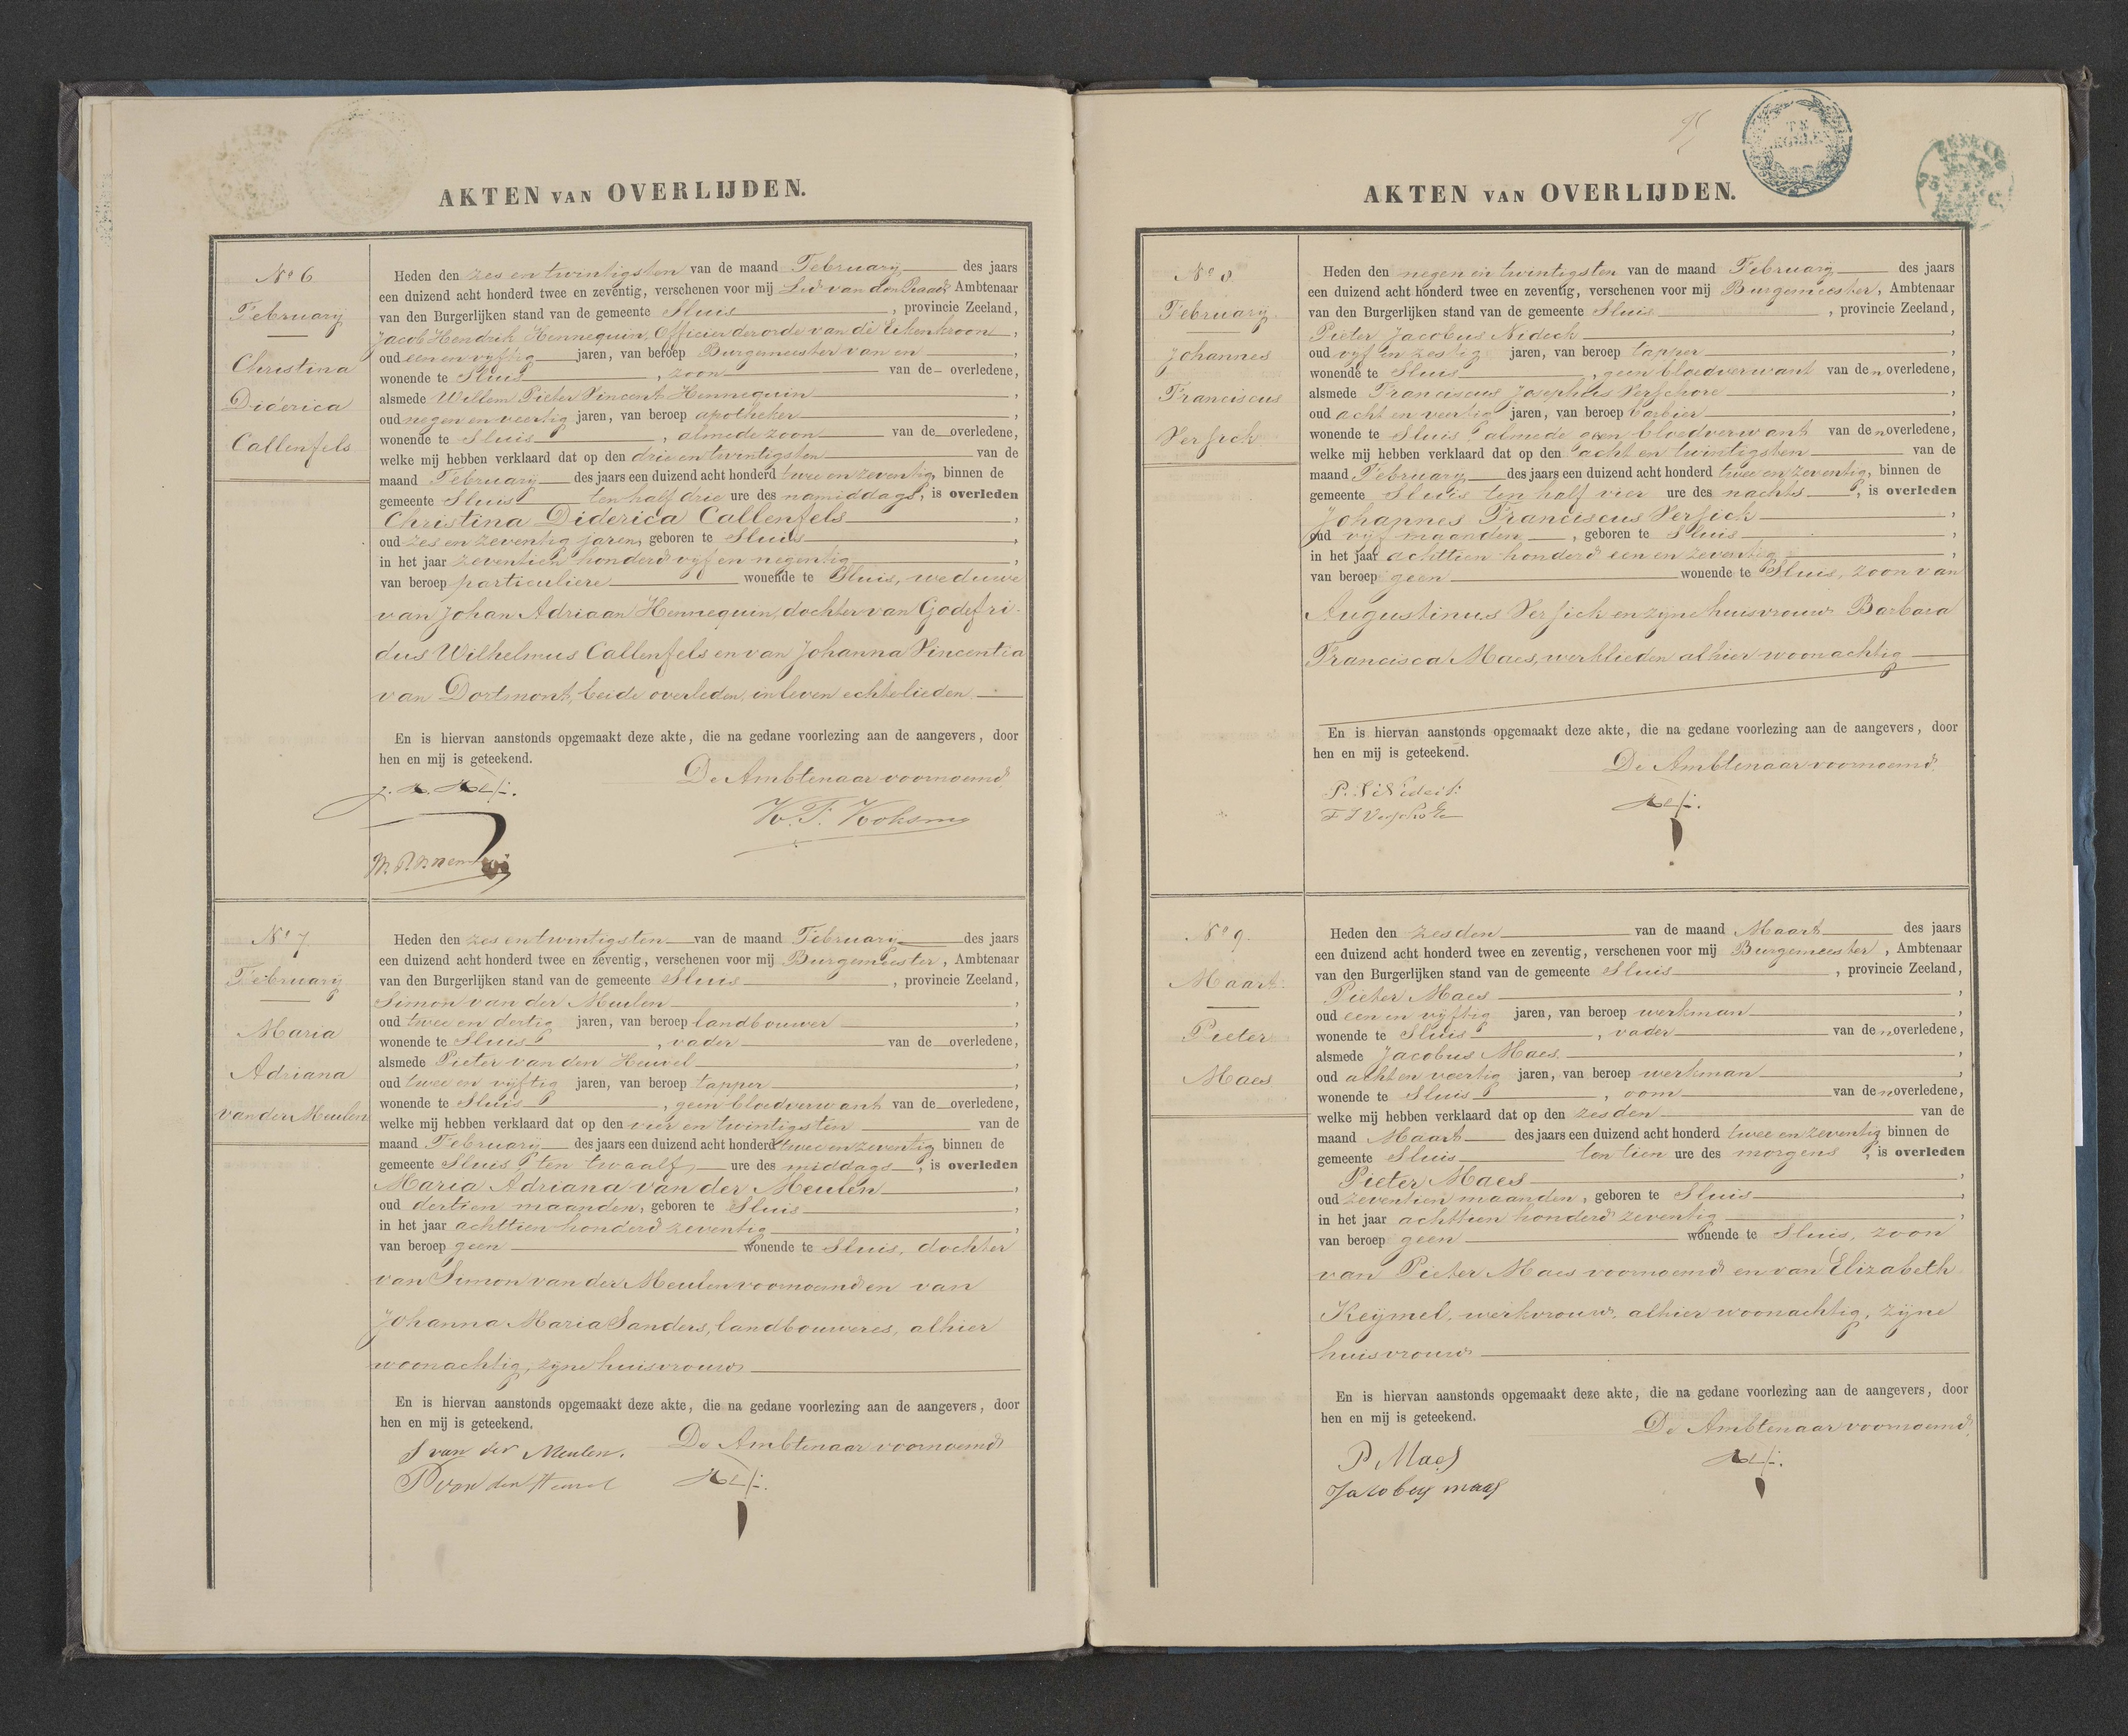 AKTEN VAN OVERLIJDEN.
No 6
February
Christina
Diderica
Callenfels
Heden den zes en twintigsten van de maand February des jaars
een duizend acht honderd twee en zeventig, verschenen voor mij Lid van den Raad Ambtenaar
van den Burgerlijken stand van de gemeente Sluis, provincie Zeeland,
Jacob Hendrik Hennequin, Officier der orde van de Eikenkroon,
oud een en vyftig jaren, van beroep Burgemeester van en,
wonende te Sluis, zoon van de overledene,
alsmede Willem Pieter Vincent Hennequin,
oud negen en veertig jaren, van beroep apotheker,
wonende te Sluis, almede zoon van de overledene,
welke mij hebben verklaard dat op den drie en twintigsten van de
maand February des jaars een duizend acht honderd twee en zeventig, binnen de
gemeente Sluis ten half drie ure des namiddags, is overleden
Christina Diderica Callenfels,
oud zes en zeventig jaren, geboren te Sluis,
in het jaar zeventien honderd vyf en negentig,
van beroep particuliere wonende te Sluis, weduwe
van Johan Adriaan Hennequin, dochter van Godefri-
dus Wilhelmus Callenfels en van Johanna Vincentia
van Dortmont, beide overleden, in leven echtelieden
En is hiervan aanstonds opgemaakt deze akte, die na gedane voorlezing aan de aangevers, door
hen en mij is geteekend.
De Ambtenaar voornoemd,
No 7.
February
Maria
Adriana
van der Meulen
Heden den zes en twintigsten van de maand February des jaars
een duizend acht honderd twee en zeventig, verschenen voor mij Burgemeester, Ambtenaar
van den Burgerlijken stand van de gemeente Sluis, provincie Zeeland,
Simon van der Meulen,
oud twee en dertig jaren, van beroep landbouwer,
wonende te Sluis, vader van de overledene,
alsmede Pieter van den Heuvel,
oud twee en vyftig jaren, van beroep tapper,
wonende te Sluis, geen bloedverwant van de overledene,
welke mij hebben verklaard dat op den vier en twintigsten van de
maand February des jaars een duizend acht honderd twee en zeventig binnen de
gemeente Sluis ten twaalf ure des middags, is overleden
Maria Adriana van der Meulen,
oud dertien maanden, geboren te Sluis,
in het jaar achttien honderd zeventig,
van beroep geen wonende te Sluis, dochter
van Simon van der Meulen voornoemd en van
Johanna Maria Sanders, landbouweres, alhier
woonachtig, zyne huisvrouw
En is hiervan aanstonds opgemaakt deze akte, die na gedane voorlezing aan de aangevers, door
hen en mij is geteekend.
De Ambtenaar voornoemd
S van der Meulen.
P van den Heuvel
AKTEN VAN OVERLIJDEN.
No 8.
February
Johannes
Franciscus
Versick
Heden den negen en twintigsten van de maand February des jaars
een duizend acht honderd twee en zeventig, verschenen voor mij Burgemeester, Ambtenaar
van den Burgerlijken stand van de gemeente Sluis, provincie Zeeland,
Pieter Jacobus Nideck,
oud vyf en zestig jaren, van beroep tapper,
wonende te Sluis, geen bloedverwant van den overledene,
alsmede Franciscus Josephus Verschore,
oud acht en veertig jaren, van beroep barbier,
wonende te Sluis almede geen bloedverwant van den overledene,
welke mij hebben verklaard dat op den acht en twintigsten van de
maand February des jaars een duizend acht honderd twee en zeventig, binnen de
gemeente Sluis ten half vier ure des nachts, is overleden
Johannes Franciscus Versick,
oud vyf maanden, geboren te Sluis,
in het jaar achttien honderd een en zeventig,
van beroep geen wonende te Sluis, zoon van
Augustinus Versick en zyne huisvrouw Barbara
Francisca Maes, werklieden alhier woonachtig
En is hiervan aanstonds opgemaakt deze akte, die na gedane voorlezing aan de aangevers, door
hen en mij is geteekend.
De Ambtenaar voornoemd.
No 9.
Maart
Pieter
Maes
Heden den zesden van de maand Maart des jaars
een duizend acht honderd twee en zeventig, verschenen voor mij Burgemeester, Ambtenaar
van den Burgerlijken stand van de gemeente Sluis, provincie Zeeland,
Pieter Maes,
oud een en vyftig jaren, van beroep werkman,
wonende te Sluis, vader van den overledene,
alsmede Jacobus Maes,
oud acht en veertig jaren, van beroep werkman,
wonende te Sluis, oom van den overledene,
welke mij hebben verklaard dat op den zesden van de
maand Maart des jaars een duizend acht honderd twee en zeventig binnen de
gemeente Sluis ten tien ure des morgens, is overleden
Pieter Maes,
oud zeventien maanden, geboren te Sluis,
in het jaar achttien honderd zeventig,
van beroep geen wonende te Sluis, zoon
van Pieter Maes voornoemd en van Elizabeth
Keymel, werkvrouw, alhier woonachtig, zyne
huisvrouw
En is hiervan aanstonds opgemaakt deze akte, die na gedane voorlezing aan de aangevers, door
hen en mij is geteekend.
De Ambtenaar voornoemd,
P. Maes
Jacobus maas